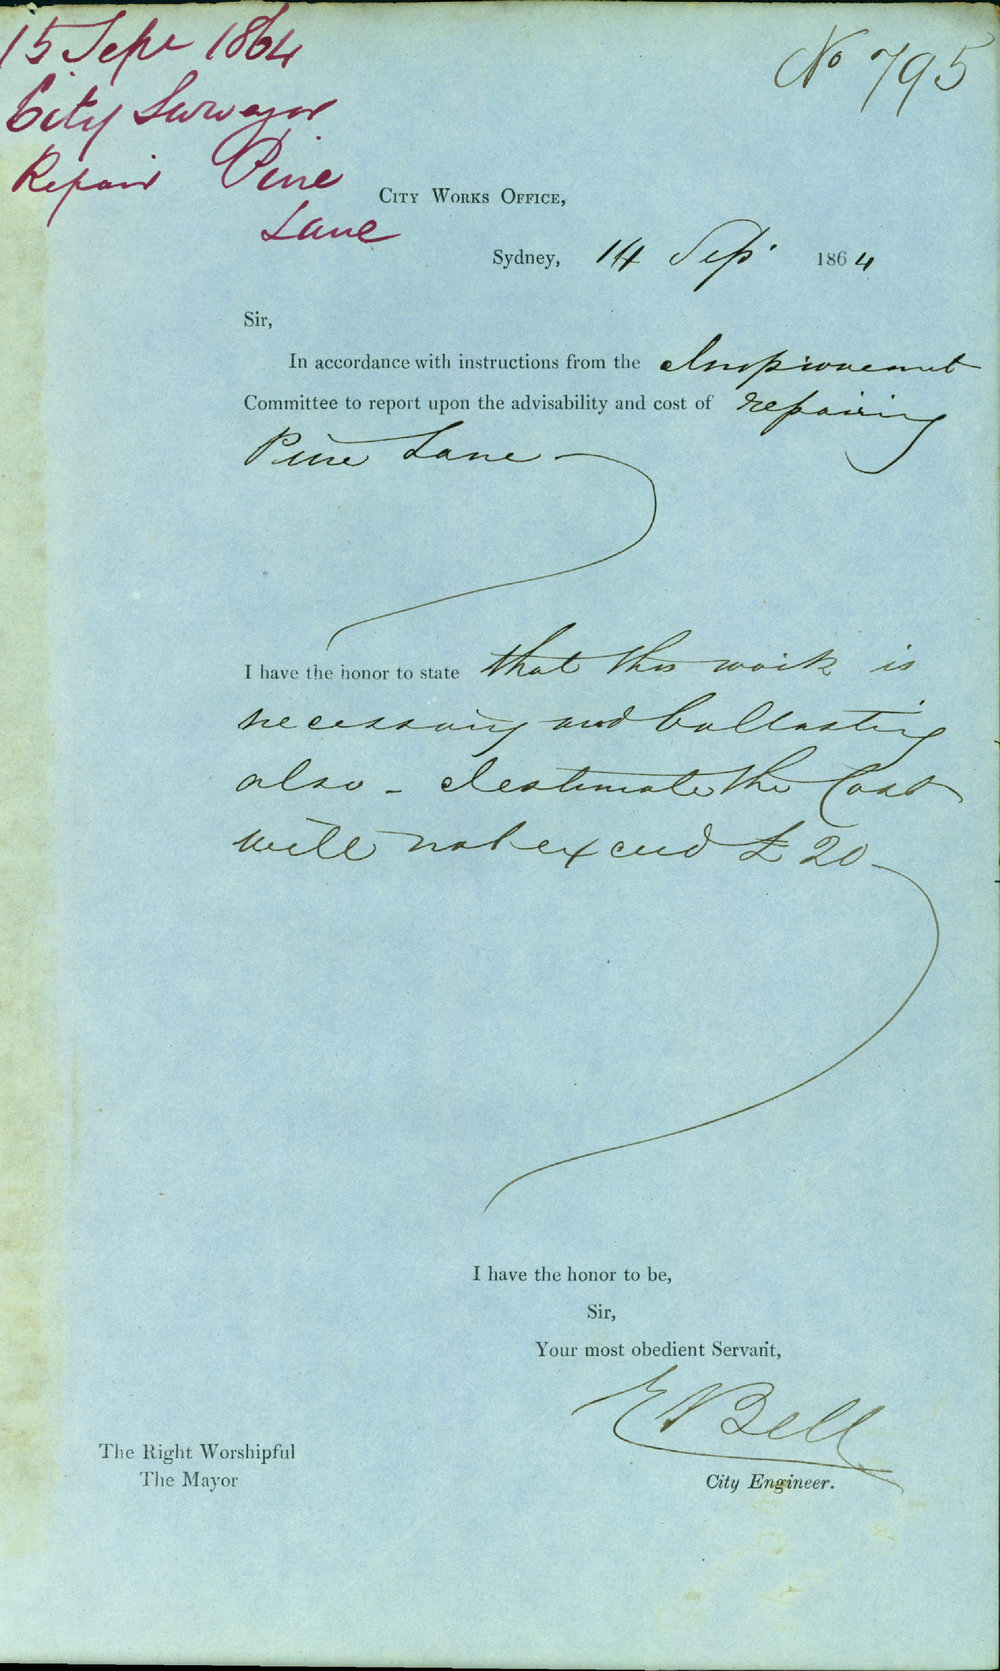 15 Sepr 1864
City Surveyor
Repair Pine
Lane
No 795
CITY WORKS OFFICE,
Sydney, 14 Sepr 1864
Sir,
In accordance with instructions from the Improvement
Committee to report upon the advisability and cost of repairing
Pine Lane —
I have the honor to state that this work is
necessary and ballasting
also - I estimate the Cost
will not exceed £20 -
I have the honor to be,
Sir,
Your most obedient Servant,
E Bell
City Engineer.
The Right Worshipful
The Mayor